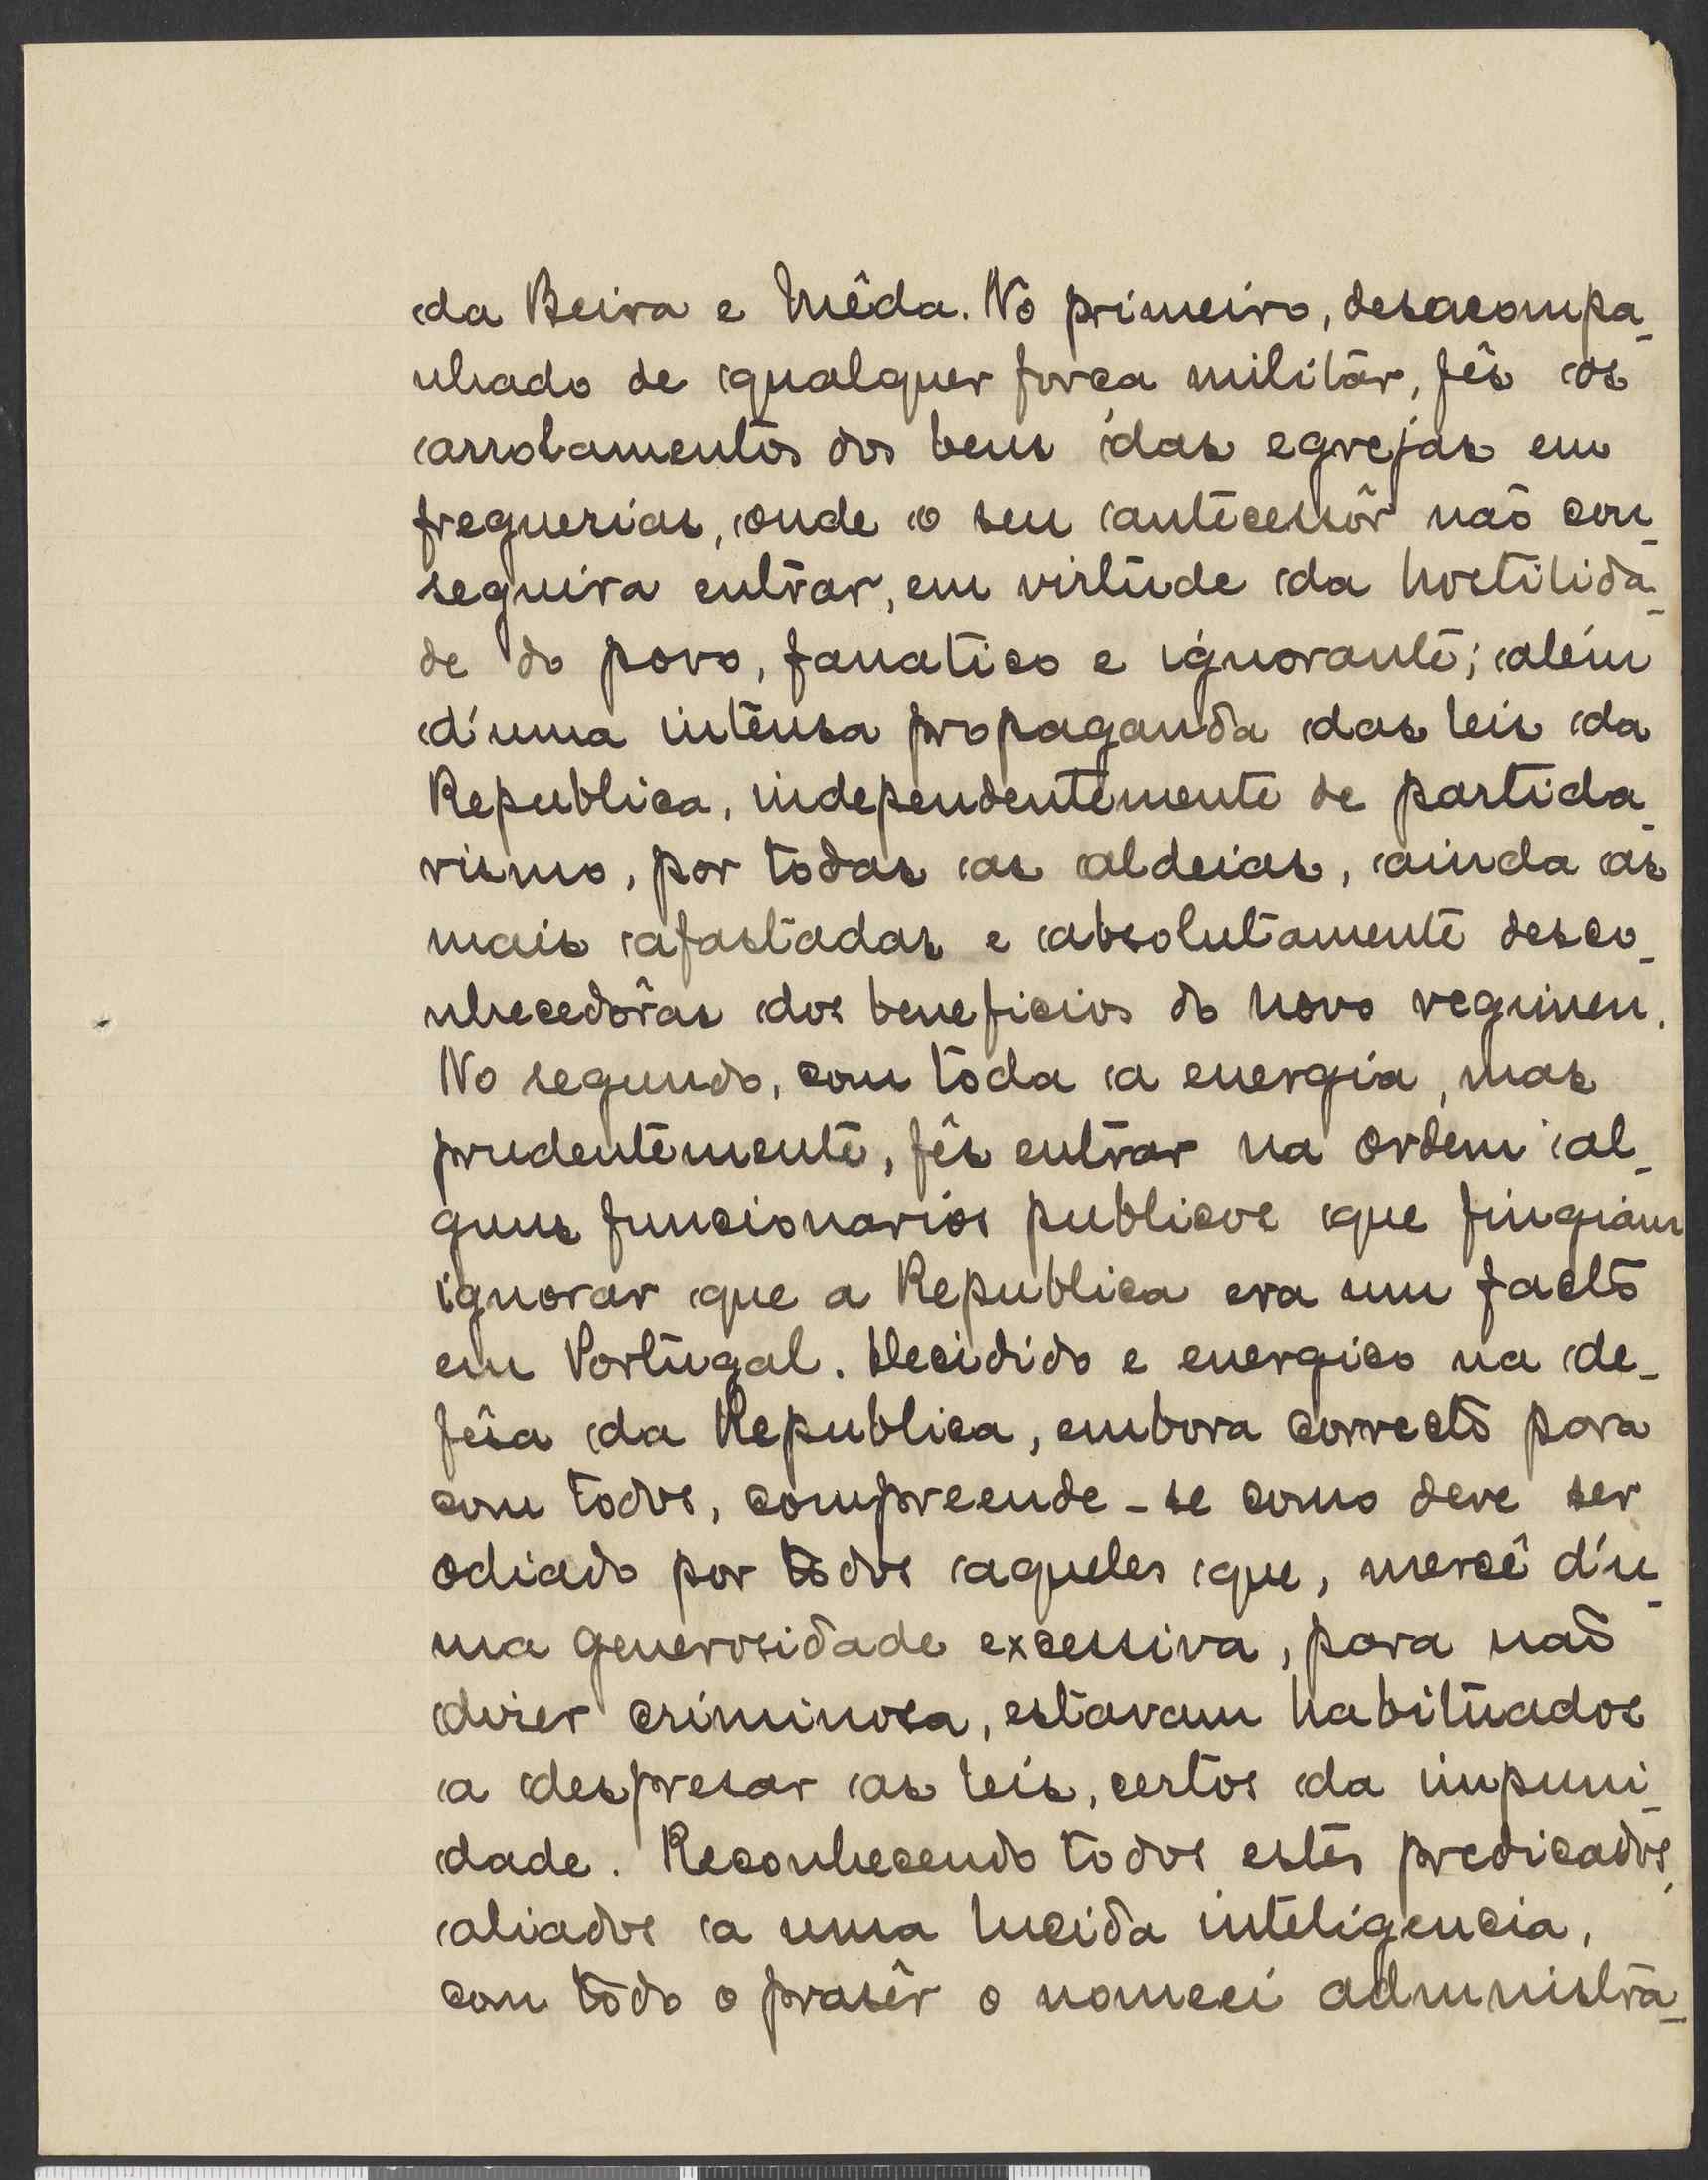 da Beira e Mêda. No primeiro, desacompa-
nhado de qualquer força militar, fês os
arrolamentos dos bens das egrejas em
freguesias, onde o seu antecessôr não con-
seguira entrar, em virtude da hostilida-
de do povo, fanatico e ignorante; além
d'uma intensa propaganda das leis da
Republica, independentemente de partida-
rismo, por todas as aldeias, ainda as
mais afastadas e absolutamente desco-
nhecedôras dos beneficios do novo regimen.
No segundo, com toda a energia, mas
prudentemente, fês entrar na ordem al-
guns funcionarios publicos que fingiam
ignorar que a Republica era um facto
em Portugal. Decidido e energico na de-
fêsa da Republica, embora correcto para
com todos, compreende-se como deve ser
odiado por todos aqueles que, mercê d'u-
ma generosidade excessiva, para não
diser criminosa, estavam habituados
a despresar as leis, certos da impuni-
dade. Reconhecendo todos estes predicados,
aliados a uma lucida inteligencia,
com todo o prasêr o nomeei administra-